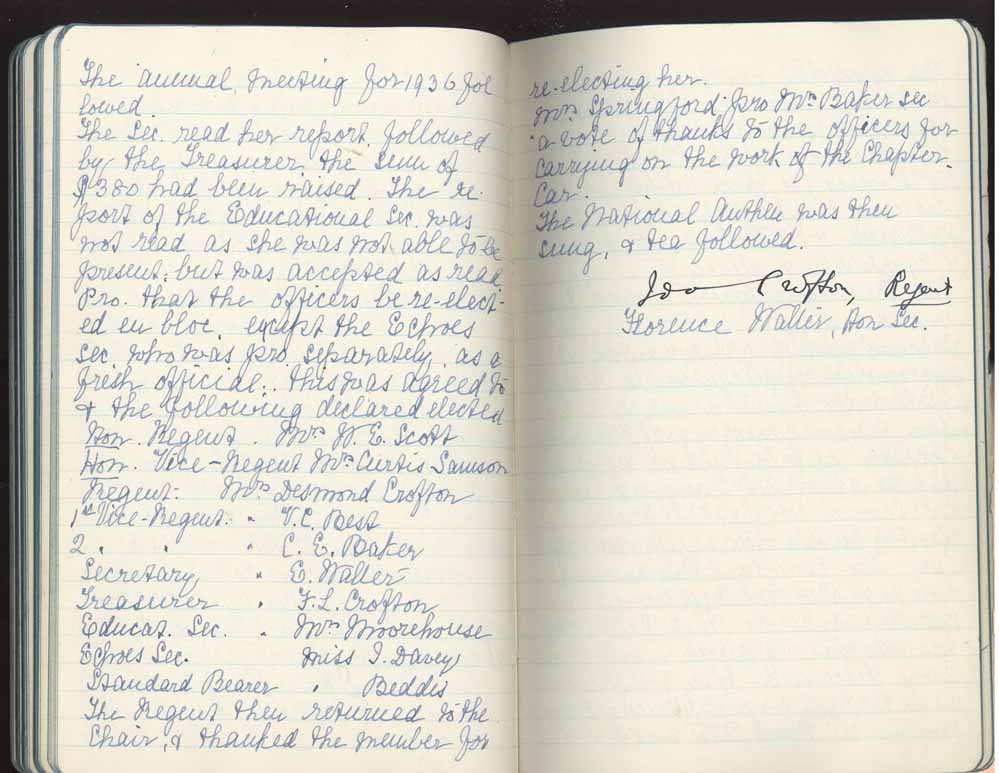 The annual meeting for 1936 fol
lowed.
The Sec. read her report, followed
by the Treasurer, the sum of
$380 had been raised. The re-
port of the Educational Sec. was
not read as she was not able to be
present, but was accepted as read.
Pro. that the officers be re-elect-
ed en bloc, except the Echoes
Sec. who was pro. separately, as a
fresh official; this was agreed to
& the following declared elected
Hon. Regent. Mrs W. E. Scott
Hon. Vice-Regent Mrs Curtis-Samson
Regent: Mrs Desmond Crofton
1st Vice-Regent: " V.C. Best
2 " " " C. E. Baker
Secretary " E. Walter
Treasurer " F. L. Crofton
Educat. Sec. " Mrs Moorehouse
Echoes Sec. Miss I. Davey
Standard Bearer " Beddis
The Regent then returned to the
Chair, & thanked the member for
re-electing her.
Mrs Springford pro Mrs Baker sec
a vote of thanks to the officers for
carrying on the work of the Chapter.
Car.
The National Anthem was then
sung, & tea followed.
Crofton, Regent
Florence Walter, Hon Sec.